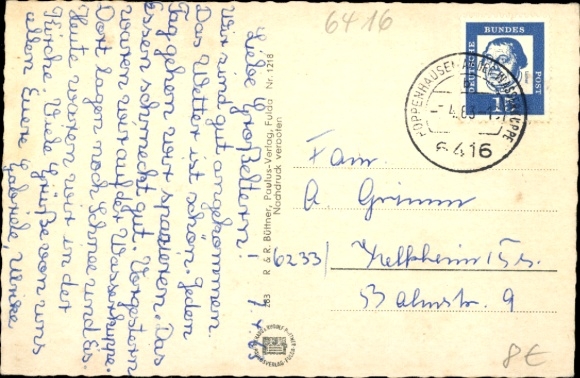 6416
1.4.63
Liebe Großeltern!
Wir sind gut angekommen
Das Wetter ist schön. Jeden
Tag gehen wir spazieren. Das
Essen schmeckt gut. Vorgestern
waren wir auf der Wasserkuppe.
Dort lagen noch Schnee und Eis.
Heute waren wir in der
Kirche. Viele Grüße von uns
allen Euere Gabriele, Ulrike
R. & R. Büttner, Paulus-Verlag, Fulda Nr. 1218
Nachdruck verboten
263
DEUTSCHE BUNDES POST
POPPENHAUSEN
6416
Fam.
A. Grimm
6233/ Kelkheim/Ts.
Balmstr. 9
8€